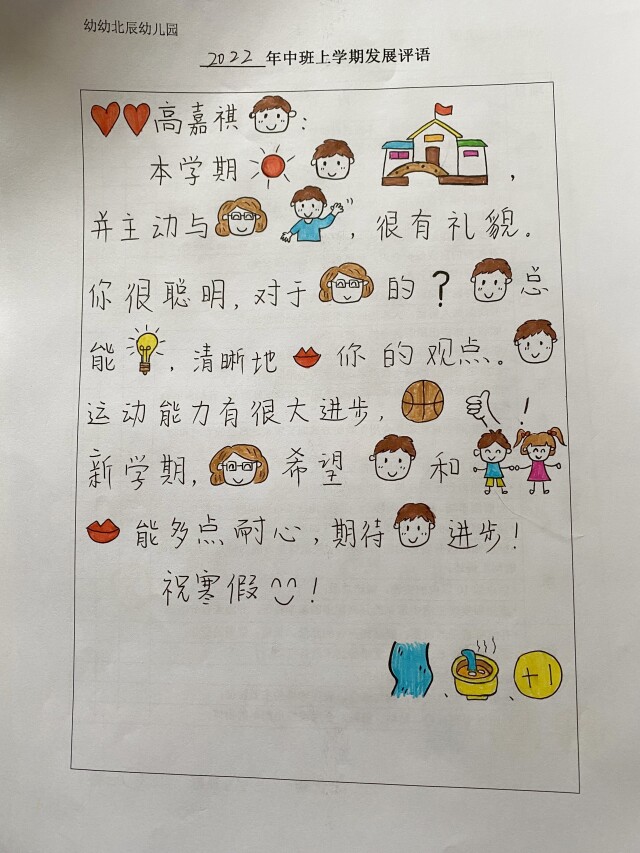 幼幼北辰幼儿园
2022年中班上学期发展评语
高嘉祺:
本学期,
并主动与,很有礼貌。
你很聪明,对于的?总
能,清晰地你的观点。
运动能力有很大进步,!
新学期,希望和
能多点耐心,期待进步!
祝寒假!
、、+1